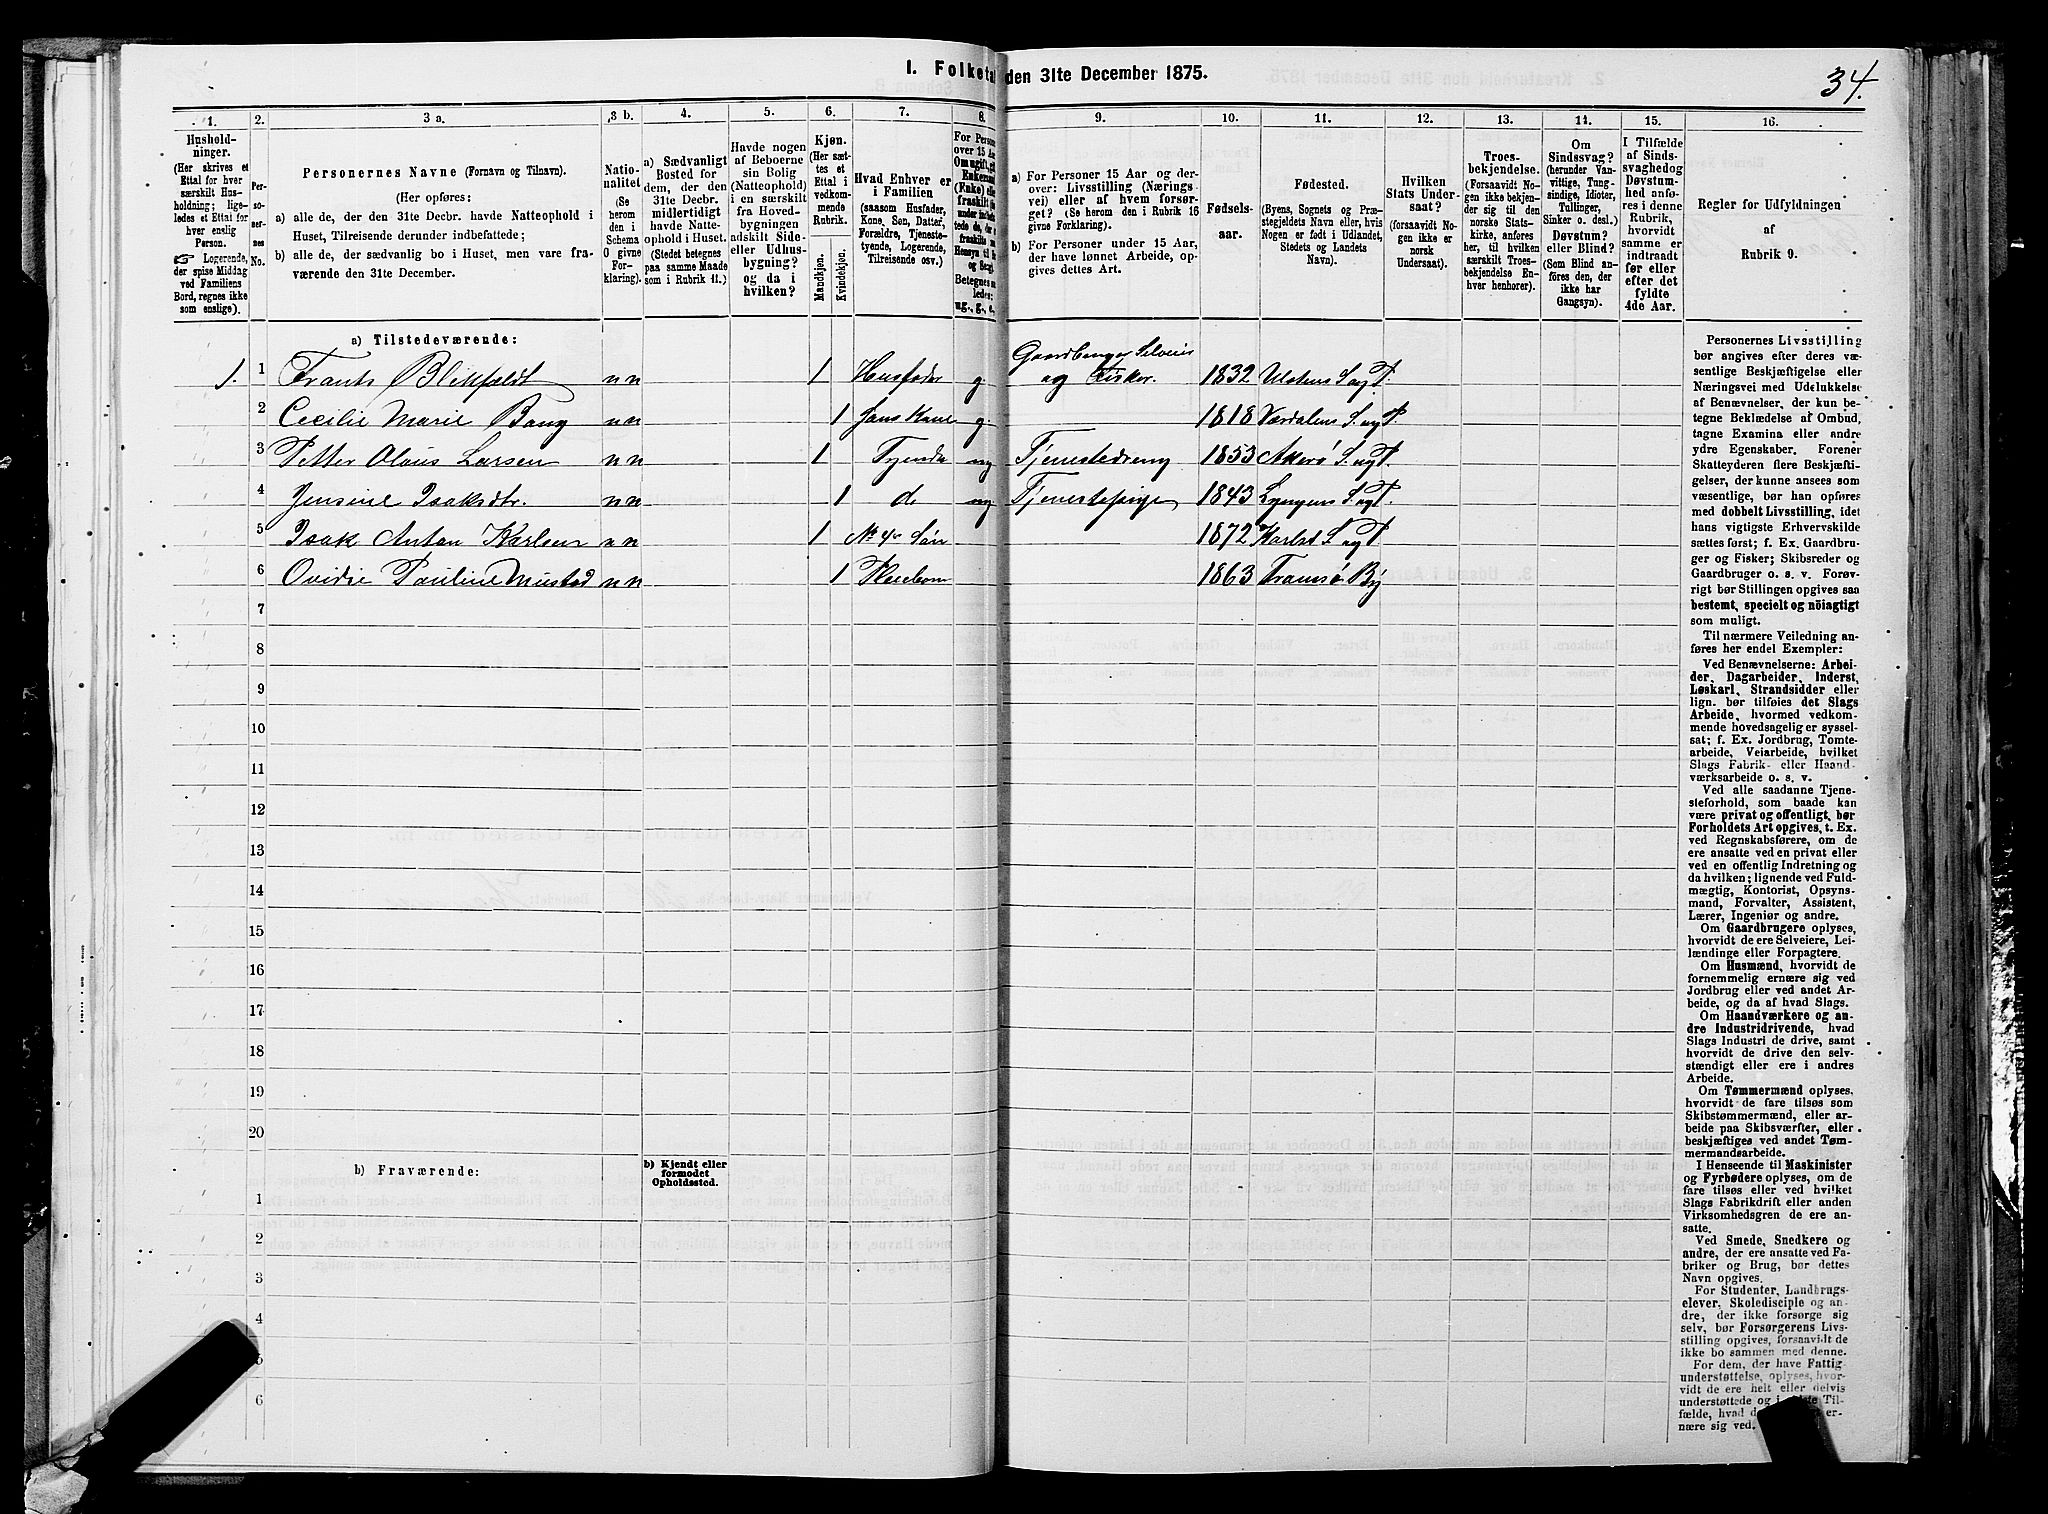 1. Folketæ den 31te December 1875.
34.
1. 2. 3 a. 3 b. 4. 5. 6. 7. 8. 9. 10. 11. 12. 13. 14. 15. 16.
Hushold-
ninger.
(Her skrives et
Ettal for hver
særskilt Hus-
holdning; lige-
ledes et Ettal for
hver enslig
Person.
Logerende,
der spise Middag
ved Familiens
Bord, regnes ikke
som enslige).
Per-
so-
ner-
nes
No.
Personernes Navne (Fornavn og Tilnavn).
(Her opføres:
a) alle de, der den 31te Decbr. havde Natteophold i
Huset, Tilreisende derunder indbefattede;
b) alle de, der sædvanlig bo i Huset, men vare fra-
værende den 31te December.
Natio-
nalitet
(Se
herom
den i
Schema
O givne
For-
klaring).
a) Sædvanligt
Bosted for
dem, der den
31te Decbr.
midlertidigt
havde Natte-
ophold i Huset.
(Stedet betegnes
paa samme Maade
som i Rubrik 11.)
Havde nogen
af Beboerne
sin Bolig
(Natteophold)
i en særskilt
fra Hoved-
bygningen
adskilt Side-
eller Udhus-
bygning?
og da i
hvilken?
Kjøn.
(Her sæt-
tes et
Ettal i
vedkom-
mende
Rubrik.
Mandkjøn.
Kvindekjøn.
Hvad Enhver er
i Familien
(saasom Husfader,
Kone, Søn, Datter,
Forældre, Tjeneste-
tyende, Logerende,
Tilreisende osv.)
For Person
over 15 Aar
Om ugift, gi
Enkemand
(Enke) elle
fraskilt
Betegnes
ledes:
ug., g., e.
a) For Personer 15 Aar og der-
over: Livsstilling (Nærings-
vei) eller af hvem forsør-
get? (Se herom den i Rubrik 16
givne Forklaring).
b) For Personer under 15 Aar,
der have lønnet Arbeide, op-
gives dettes Art.
Fødsels-
aar.
Fødested.
(Byens, Sognets og Præ-
stegjeldets Navn eller, hvis
Nogen er født i Udlandet,
Stedets og Landets
Navn).
Hvilken
Stats Under-
saat?
(forsaavidt No-
gen ikke er
norsk
Undersaat).
Troes-
bekjendelse.
(Forsaavidt No-
gen ikke bekjen-
der sig til den
norske Stats-
kirke, anføres
her, til hvilken
særskilt Troes-
bekjendelse En-
hver henhører).
Om
Sindssvag?
(herunder Van-
vittige, Tung-
sindige, Idioter,
Tullinger,
Sinker o. desl.)
Døvstum?
eller Blind?
(Som Blind an-
føres den, der
ikke har
Gangsyn).
I Tilfælde
af Sinds-
svaghed og
Døvstum-
hed anfø-
res i denne
Rubrik,
hvorvidt
samme er
indtraadt
før eller
efter det
fyldte
4de Aar.
Regler for Udfyldningen
af
Rubrik 9.
a) Tilstedeværende:
1. 1 Frants Blikfeldt n n 1 Husfader g. Gaardbruger Selveier
og Fisker. 1832 Ulstens S. og P.
2 Cecilie Marie Bang n n 1 hans Kone g. 1818 Værdalens S. og P.
3 Petter Olaus Larsen n n 1 Tyende ug Tjenestedreng 1853 Akerø S. og P.
4 Jensine Isaksdtr. n n 1 do ug. Tjenestepige 1843 Lyngens S. og P.
5 Isak Anton Karlsen n n 1 No 4s Søn 1872 Karlsø S. og P.
6 Ovidie Pauline Mustad n n 1 Pleiebarn 1863 Tromsø By
7
8
9
10
11
12
13
14
15
16
17
18
19
20
b) Fraværende:
b) Kjendt eller
formodet
Opholdssted.
1
2
3
4
6
Personernes Livsstilling
bør angives efter deres væ-
sentlige Beskjæftigelse eller
Næringsvei med Udelukkelse
af Benævnelser, der kun be-
tegne Beklædelse af Ombud,
tagne Examina eller andre
ydre Egenskaber. Forener
Skatteyderen flere Beskjæfti-
gelser, der kunne ansees som
væsentlige, bør han opføres
med dobbelt Livsstilling, idet
hans vigtigste Erhvervskilde
sættes først; f. Ex. Gaardbru-
ger og Fisker; Skibsreder og
Gaardbruger o. s. v. Forøv-
rigt bør Stillingen opgives saa
bestemt, specielt og nöiagtigt
som muligt.
Til nærmere Veiledning an-
føres her endel Exempler:
Ved Benævnelserne: Arbei-
der, Dagarbeider, Inderst,
Løskarl, Strandsidder eller
lign. bør tilføies det Slags
Arbeide, hvormed vedkom-
mende hovedsagelig er syssel-
sat; f. Ex. Jordbrug, Tomte-
arbeide, Veiarbeide, hvilket
Slags Fabrik- eller Haand-
værksarbeide o. s. v.
Ved alle saadanne Tjene-
steforhold, som baade kan
være privat og offentligt, bør
Forholdets Art opgives, t. Ex.
ved Regnskabsførere, om de
ere ansatte ved en privat eller
ved en offentlig Indretning og
da hvilken; lignende ved Fuld-
mægtig, Kontorist, Opsyns-
mand, Forvalter, Assistent,
Lærer, Ingeniør og andre.
Om Gaardbrugere oplyses,
hvorvidt de ere Selveiere, Lei-
lændinge eller Forpagtere.
Om Husmænd, hvorvidt de
fornemmelig ernære sig ved
Jordbrug eller ved andet Ar-
beide, og da af hvad Slags.
Om Haandværkere og an-
dre Industridrivende, hvad
Slags Industri de drive, samt
hvorvidt de drive den selv-
stændigt eller ere i andres
Arbeide.
Om Tømmermænd oplyses,
hvorvidt de fare tilsøs som
Skibstømmermænd, eller ar-
beide paa Skibsværfter, eller
beskjæftiges ved andet Tøm-
mermandsarbeide.
I Henseende til Maskinister
og Fyrbødere oplyses, om de
fare tilsøs eller ved hvilket
Slags Fabrikdrift eller anden
Virksomhedsgren de ere an-
satte.
Ved Smede, Snedkere og
andre, der ere ansatte ved Fa-
briker og Brug, bør dettes
Navn opgives.
For Studenter, Landbrugs-
elever, Skoledisciple og an-
dre, der ikke forsørge sig
selv, bør Forsørgerens Livs-
stilling opgives, forsaavidt de
ikke bo sammen med denne.
For dem, der have Fattig-
understøttelse, oplyses, hvor-
vidt de ere helt eller delvis
understøttede og i Til-
fælde, hvad er-
nære sig ved.